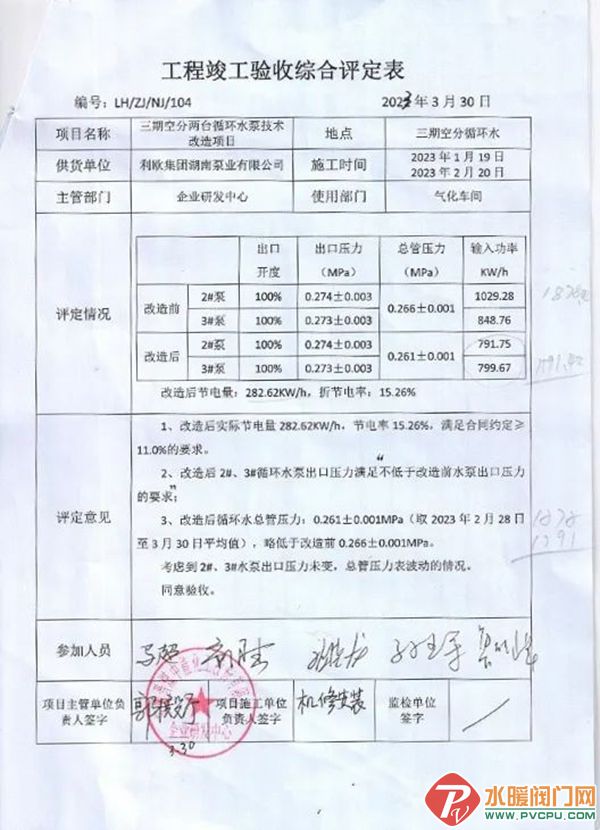 工程竣工验收综合评定表
编号：LH/ZJ/NJ/104 2023年3月30日
项目名称 三期空分两台循环水泵技术改造项目 地点 三期空分循环水
供货单位 利欧集团湖南泵业有限公司 施工时间 2023年1月19日
2023年2月20日
主管部门 企业研发中心 使用部门 气化车间
评定情况
出口开度 出口压力（MPa） 总管压力（MPa） 输入功率KW/h
改造前 2#泵 100% 0.274±0.003 0.266±0.001 1029.28
3#泵 100% 0.273±0.003 848.76
改造后 2#泵 100% 0.274±0.003 0.261±0.001 791.75
3#泵 100% 0.273±0.003 799.67
改造后节电量：282.62KW/h，折节电率：15.26%
评定意见
1、改造后实际节电量282.62KW/h，节电率15.26%，满足合同约定≥
11.0%的要求。
2、改造后2#、3#循环水泵出口压力满足“不低于改造前水泵出口压力
的要求”；
3、改造后循环水总管压力：0.261±0.001MPa（取2023年2月28日
至3月30日平均值），略低于改造前0.266±0.001MPa。
考虑到2#、3#水泵出口压力未变，总管压力表波动的情况。
同意验收。
参加人员
项目主管单位负责人签字 项目施工单位负责人签字 机修安装 监检单位签字
企业研发中心
3.30
水暖阀门网
WWW.PVCPU.COM